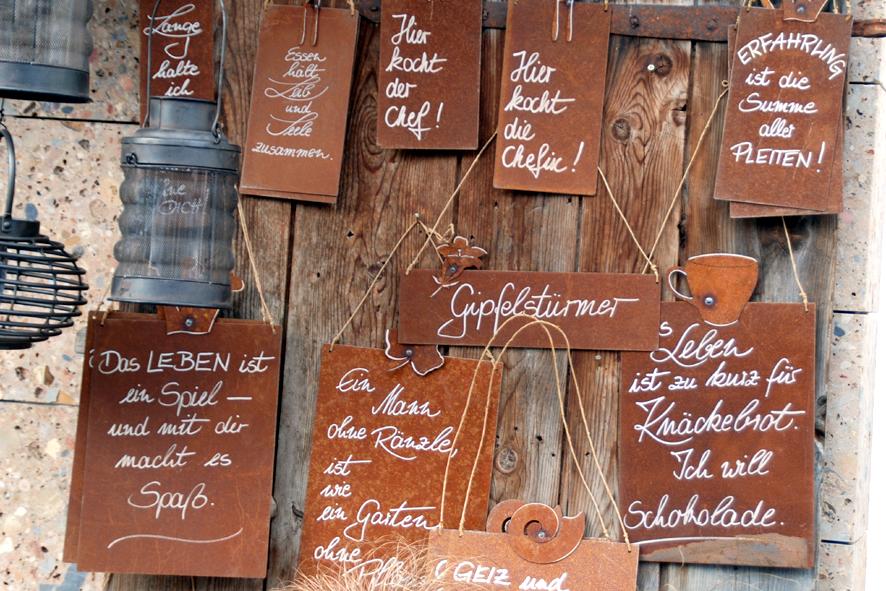 Lange
halte
ich
ine
DICH
Essen
hält
Leib
und
Seele
zusammen.
Hier
kocht
der
Chef!
Hier
kocht
die
Chefin!
ERFAHRUNG
ist die
Summe
aller
PLEITEN!
Gipfelstürmer
Das LEBEN ist
ein Spiel –
und mit dir
macht es
Spaß.
Ein
Mann
ohne Ränzle,
ist
wie
ein Garten
ohne
s
Leben
ist zu kurz für
Knäckebrot.
Ich will
Schokolade.
GEIZ und